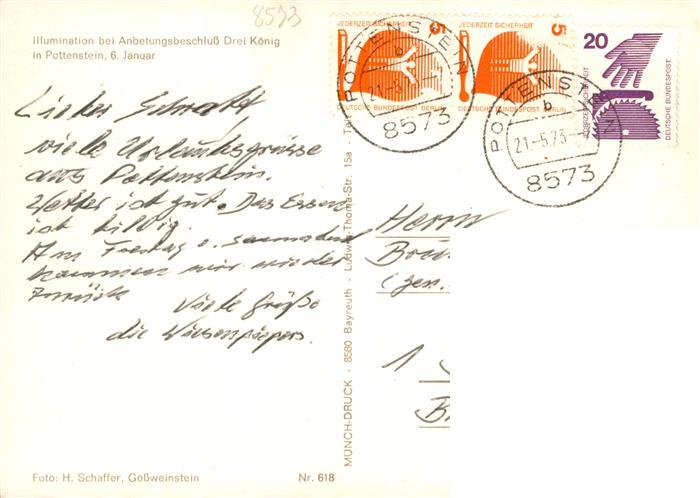 8573
Illumination bei Anbetungsbeschluß Drei König
in Pottenstein, 6. Januar
JEDERZEIT SICHERHEIT
5
DEUTSCHE BUNDESPOST BERLIN
JEDERZEIT SICHERHEIT
5
DEUTSCHE BUNDESPOST BERLIN
20
JEDERZEIT SICHERHEIT
DEUTSCHE BUNDESPOST
POTTENSTEIN
b
8573
POTTENS
b
21.-5.73
8573
Lieber
viele Urlaubsgrüsse
aus Pottenstein.
Wetter ist gut. Das Essen
ist billig.
Am Freitag o.
kommen wir wieder
zurück
Viele Grüße
die
Herrn
1
MÜNCH-DRUCK - 8580 Bayreuth - Ludwig-Thoma-Str. 15a
Foto: H. Schaffer, Gößweinstein
Nr. 618